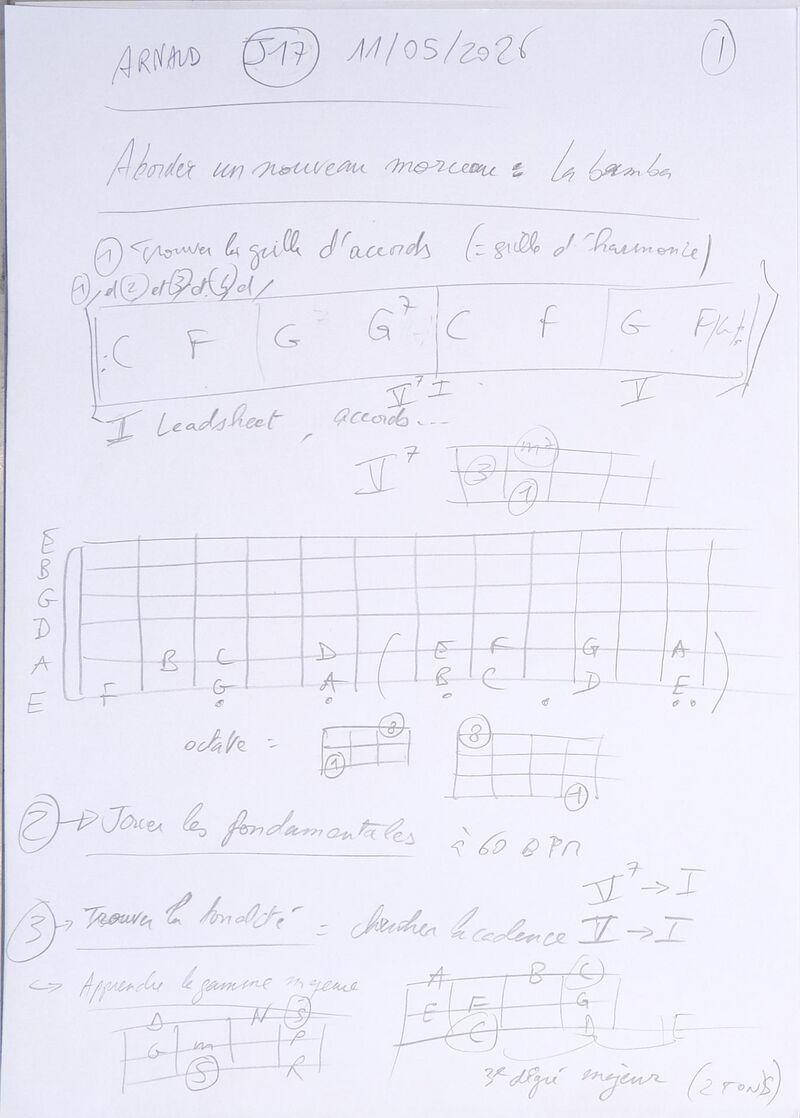 ARNAUD J17 11/05/2026 1
Aborder un nouveau morceau = La bamba
1 Trouver la grille d'accords (= grille d'harmonie)
1, d 2 et 3 et 4 d,
: C F G G7 C F G F
V7 I V
I Leadsheet, accords...
V7 3 m7 1
E
B
G
D
A B C D ( E F G A )
E F G A B C D E
octave = 1 8 8 1
2 → Jouer les fondamentales à 60 BPM
V7 → I
3 → Trouver la tonalité = chercher la cadence V → I
↪ Apprendre la gamme majeure
A B C
D N S
E F G
G m P
C D E
S R
3e degré majeur (2 TONS)